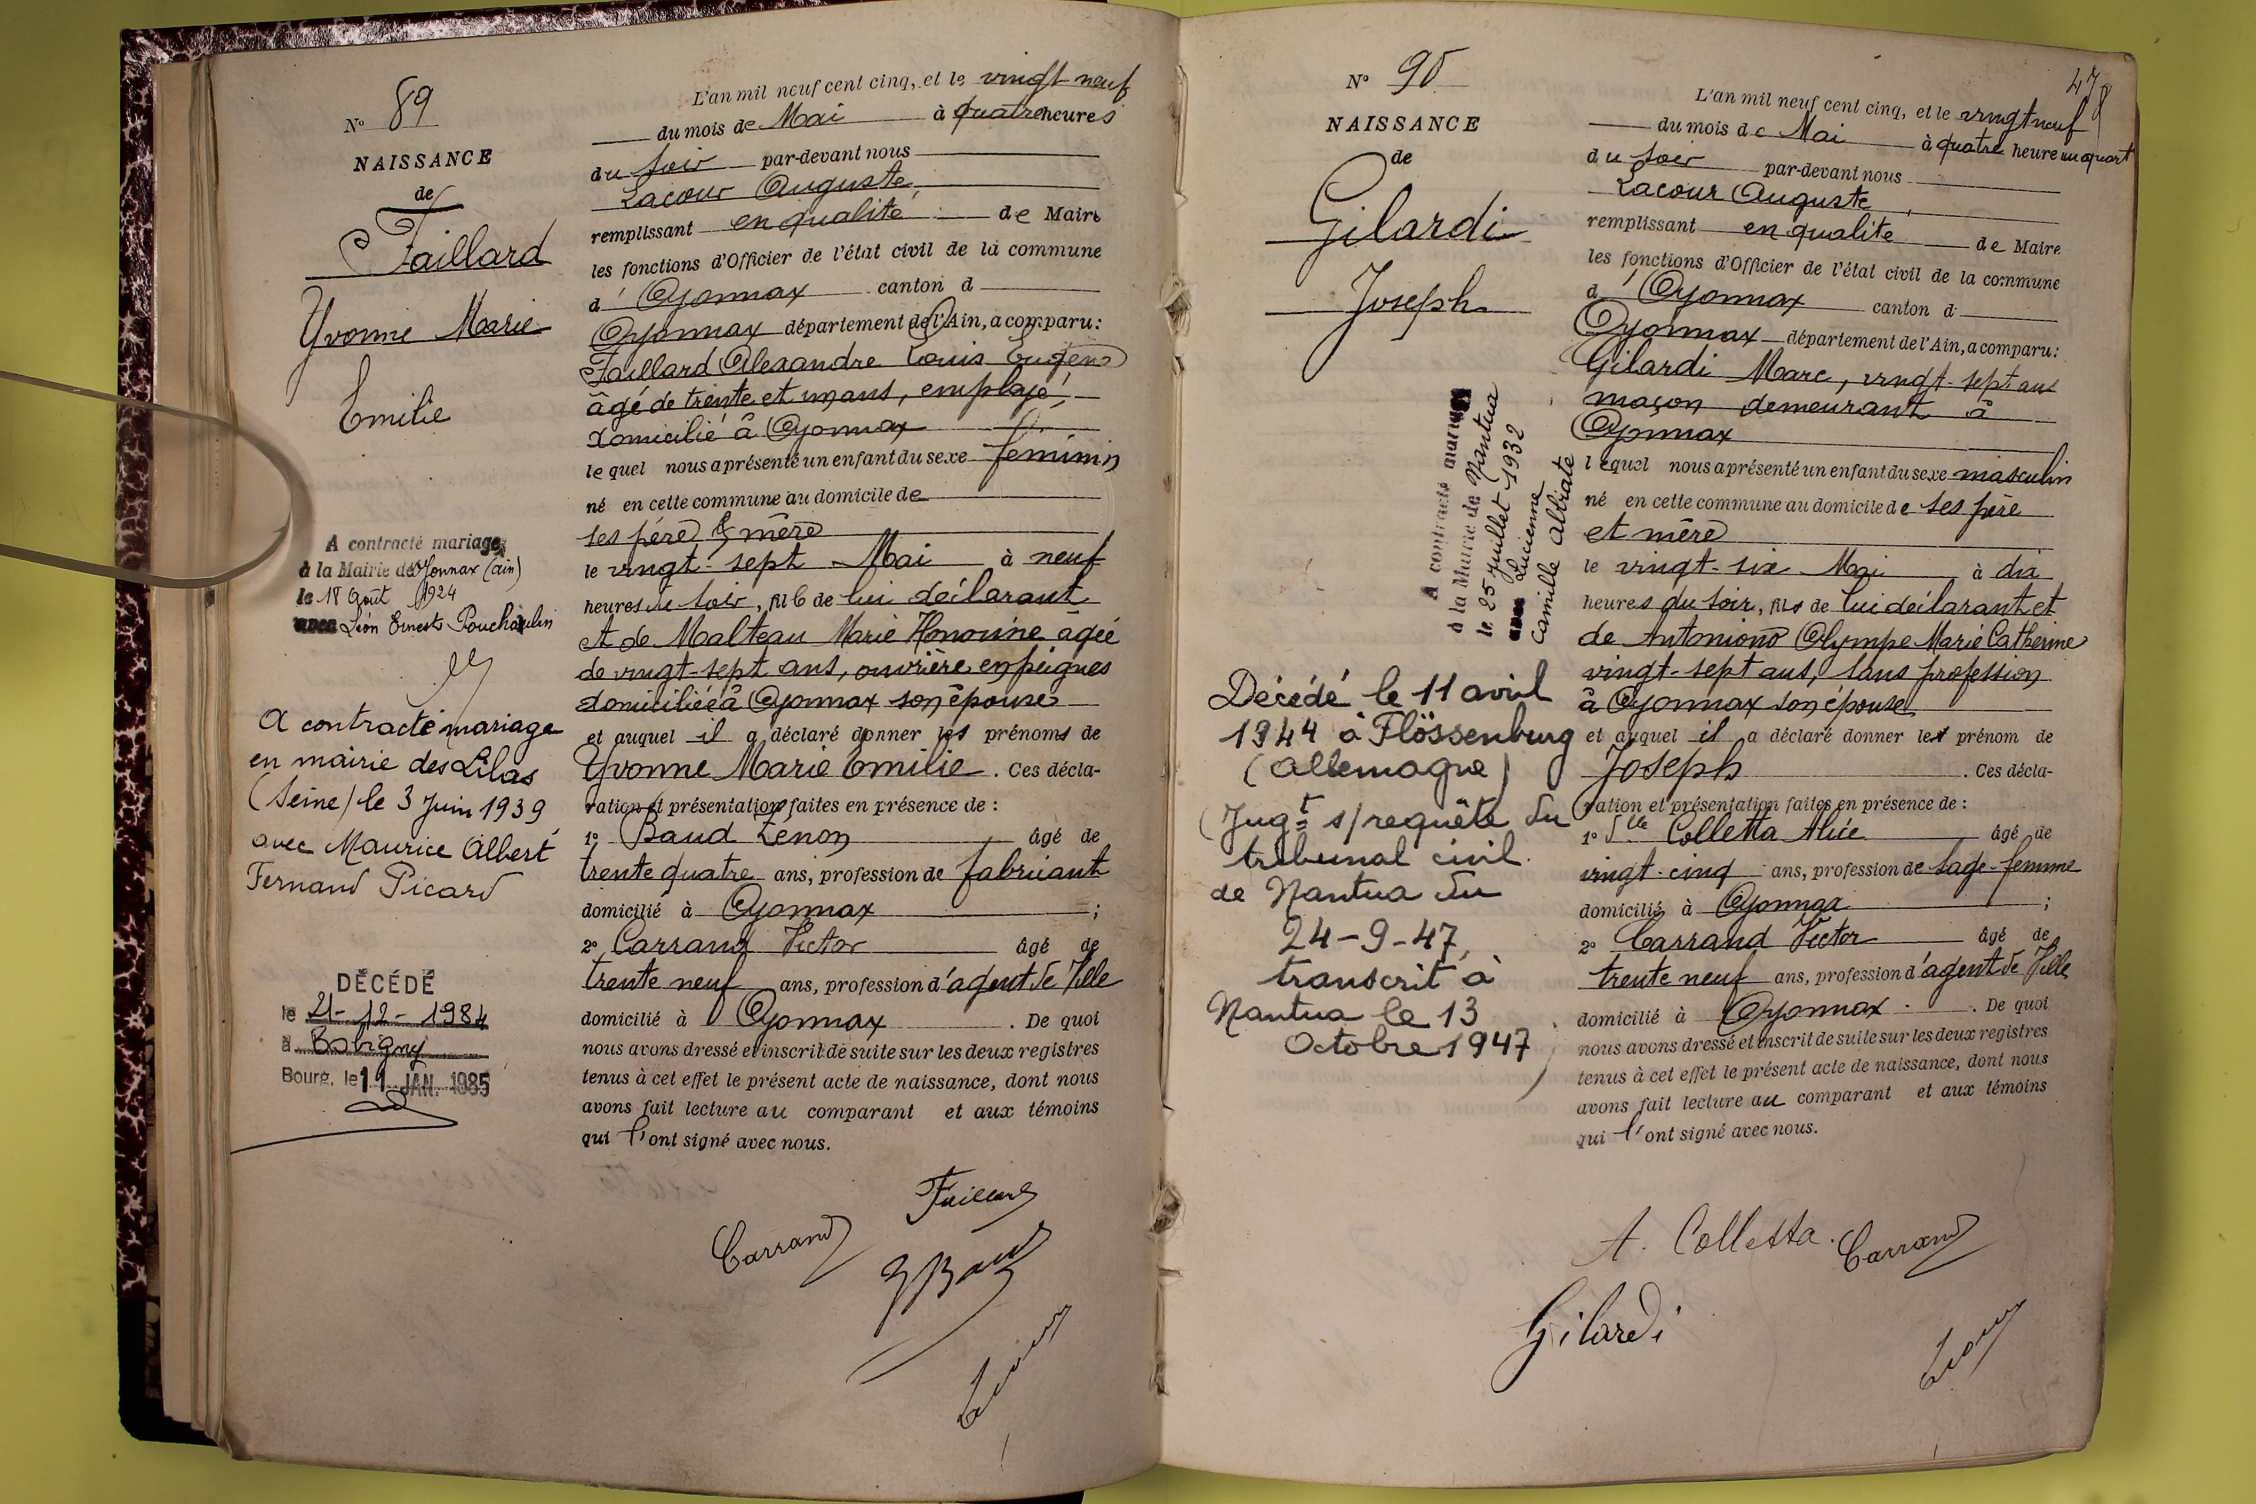 N° 89
NAISSANCE
de
Faillard
Yvonne Marie
Emilie
A contracté mariage
à la Mairie de Oyonnax (Ain)
le 18 Août 1924
avec Léon Ernest
A contracté mariage
en mairie des Lilas
(Seine) le 3 Juin 1939
avec Maurice Albert
Fernand Picard
DÉCÉDÉ
le 21-12-1984
à Bobigny
Bourg, le 11 JAN. 1985
L'an mil neuf cent cinq, et le vingt neuf
du mois de Mai à quatre heures
du soir par-devant nous
Lacour Auguste,
remplissant en qualité de Maire
les fonctions d'Officier de l'état civil de la commune
d'Oyonnax canton d
Oyonnax département de l'Ain, a comparu:
Faillard Alexandre Louis Eugène
âgé de trente et un ans, employé,
domicilié à Oyonnax
lequel nous a présenté un enfant du sexe féminin
né en cette commune au domicile de
ses père & mère
le vingt-sept Mai à neuf
heures du soir, fille de lui déclarant
et de Malteau Marie Honorine agée
de vingt-sept ans, ouvrière en peignes
domiciliée à Oyonnax son épouse
et auquel il a déclaré donner les prénoms de
Yvonne Marie Emilie. Ces décla-
ration et présentation faites en présence de :
1° Baud Zenon âgé de
trente quatre ans, profession de fabricant
domicilié à Oyonnax ;
2° Carrand Victor âgé de
trente neuf ans, profession d'agent de Ville
domicilié à Oyonnax. De quoi
nous avons dressé et inscrit de suite sur les deux registres
tenus à cet effet le présent acte de naissance, dont nous
avons fait lecture au comparant et aux témoins
qui l'ont signé avec nous.
Faillard
Carrand
Baud
Lacour
47
N° 90
NAISSANCE
de
Gilardi
Joseph
A contracté mariage
à la Mairie de Nantua
le 25 juillet 1932
avec Lucienne
Camille
Décédé le 11 avril
1944 à Flössenburg
(Allemagne)
(Jugt s/requête du
tribunal civil
de Nantua du
24-9-47,
transcrit à
Nantua le 13
Octobre 1947)
L'an mil neuf cent cinq, et le vingt neuf
du mois de Mai à quatre heure un quart
du soir par-devant nous
Lacour Auguste,
remplissant en qualité de Maire
les fonctions d'Officier de l'état civil de la commune
d'Oyonnax canton d
Oyonnax département de l'Ain, a comparu:
Gilardi Marc, vingt-sept ans
maçon demeurant à
Oyonnax
lequel nous a présenté un enfant du sexe masculin
né en cette commune au domicile de ses père
et mère
le vingt-six Mai à dix
heures du soir, fils de lui déclarant et
de Antoniono Olympe Marie Catherine
vingt-sept ans, sans profession
à Oyonnax son épouse
et auquel il a déclaré donner les prénom de
Joseph. Ces décla-
ration et présentation faites en présence de :
1° Dlle Colletta Alice âgé de
vingt-cinq ans, profession de sage-femme
domicilié à Oyonnax ;
2° Carrand Victor âgé de
trente neuf ans, profession d'agent de Ville
domicilié à Oyonnax. De quoi
nous avons dressé et inscrit de suite sur les deux registres
tenus à cet effet le présent acte de naissance, dont nous
avons fait lecture au comparant et aux témoins
qui l'ont signé avec nous.
A. Colletta. Carrand
Gilardi
Lacour